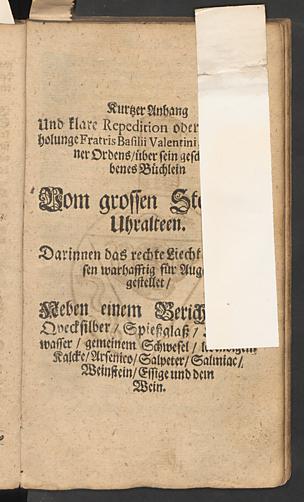 Kurtzer Anhang
Und klare Repedition oder
holunge Fratris Basilii Valentini
ner Ordens/über sein gesch
benes Büchlein
Vom grossen Ste
Uhralteen.
Darinnen das rechte Liecht
sen warhafftig für Aug
gestellet/
Neben einem Berich
Qvecksilber/ Spießglaß/
wasser/ gemeinem Schwefel/
Kalcke/Arsenico/Salpeter/Salmiac/
Weinstein/Essige und dem
Wein.